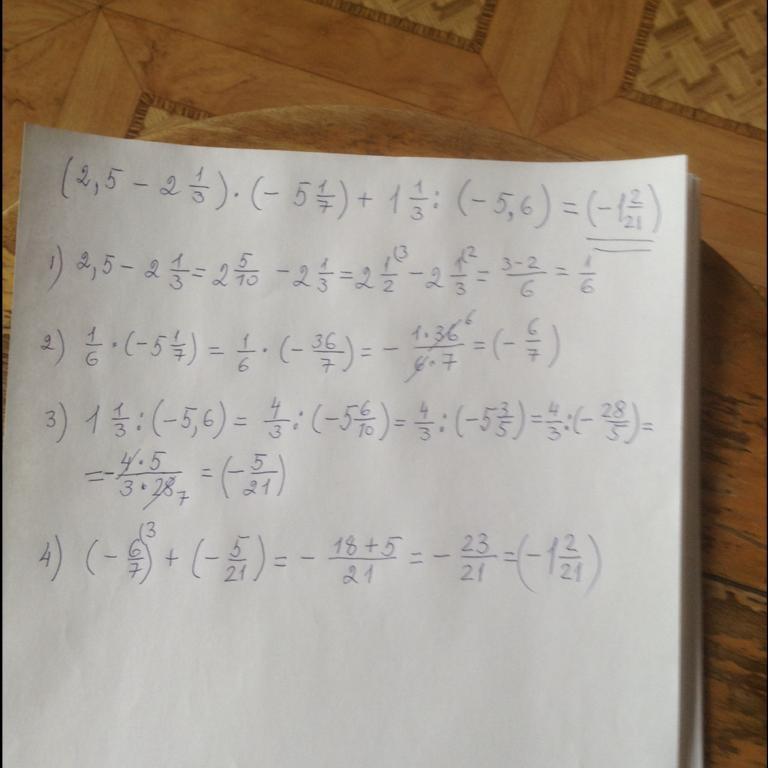 (2,5 - 2 1/3) · (- 5 1/7) + 1 1/3 : (-5,6) = (-1 2/21)
1) 2,5 - 2 1/3 = 2 5/10 - 2 1/3 = 2 1/2 (3 - 2 1/3 (2 = 3-2/6 = 1/6
2) 1/6 · (-5 1/7) = 1/6 · (- 36/7) = - 1·36 6/6·7 = (- 6/7)
3) 1 1/3 : (-5,6) = 4/3 : (-5 6/10) = 4/3 : (-5 3/5) = 4/3 : (- 28/5) =
= - 4·5/3·28 7 = (- 5/21)
4) (- 6/7) (3 + (- 5/21) = - 18+5/21 = - 23/21 = (-1 2/21)